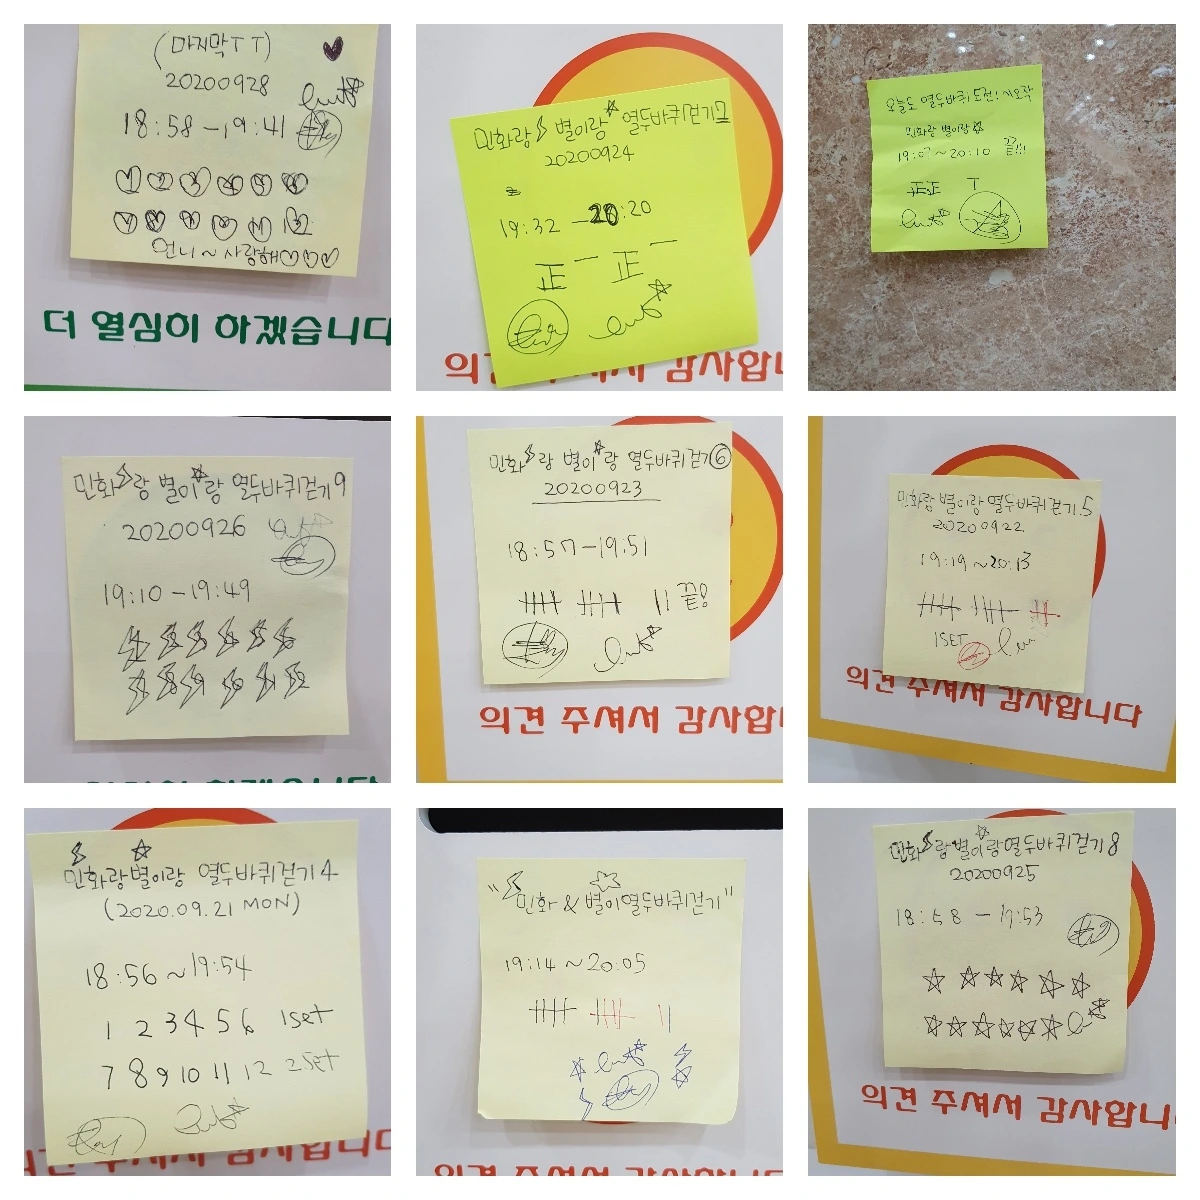 (마지막ㅜㅜ)
20200928
18:58-19:41
1 2 3 4 5 6
7 8 9 10 11 12
언니~사랑해♡♡♡
더 열심히 하겠습니다
민화랑 별이랑 열두바퀴걷기 7
20200924
19:32-20:20
正一 正一
의견 주셔서 감사합니
오늘도 열두바퀴 도전! 시오작
민화랑 별이랑☆
19:07~20:10 끝!!!
正正 T
민화랑 별이랑 열두바퀴걷기 9
20200926
19:10-19:49
1 2 3 4 5 6
7 8 9 10 11 12
민화랑 별이랑 열두바퀴걷기 ⑥
20200923
18:57-19:51
끝!
의견 주셔서 감사합니
민화랑 별이랑 열두바퀴걷기.5
20200922
19:19~20:13
1SET
의견 주셔서 감사합니다
민화랑별이랑 열두바퀴걷기 4
(2020.09.21 MON)
18:56~19:54
1 2 3 4 5 6 1set
7 8 9 10 11 12 2set
의견 주셔서 감사합니다
"민화 & 별이열두바퀴걷기"
19:14~20:05
의견 주셔서 감사합니다
민화랑별이랑열두바퀴걷기 8
20200925
18:58-19:53
의견 주셔서 감사합니